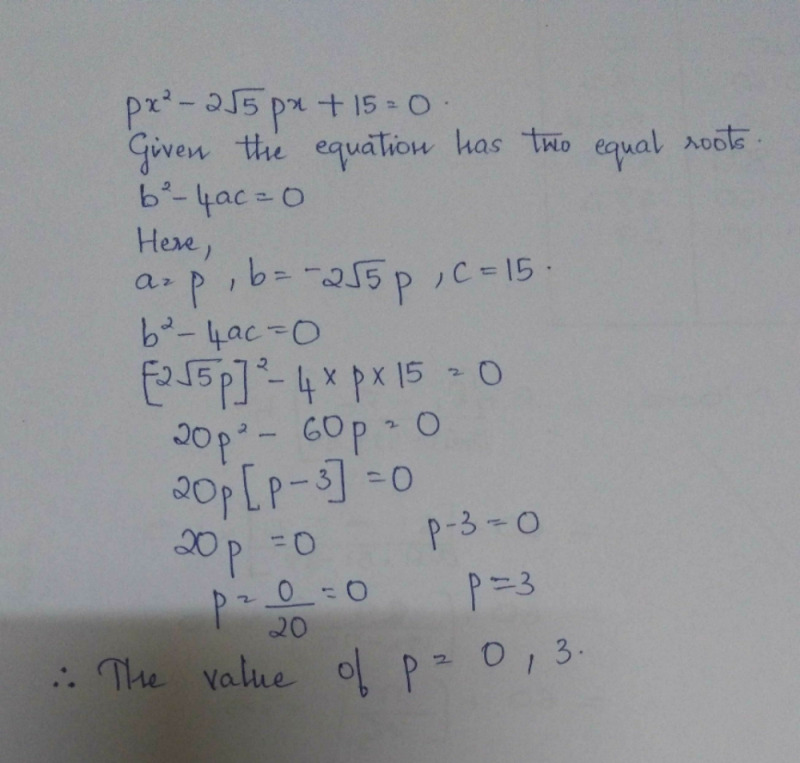 px² - 2√5 px + 15 = 0.
Given the equation has two equal roots.
b² - 4ac = 0
Here,
a = p , b = -2√5 p , c = 15.
b² - 4ac = 0
[-2√5p]² - 4 × p × 15 = 0
20p² - 60p = 0
20p [p - 3] = 0
20p = 0 p - 3 = 0
p = 0/20 = 0 p = 3
∴ The value of p = 0 , 3.